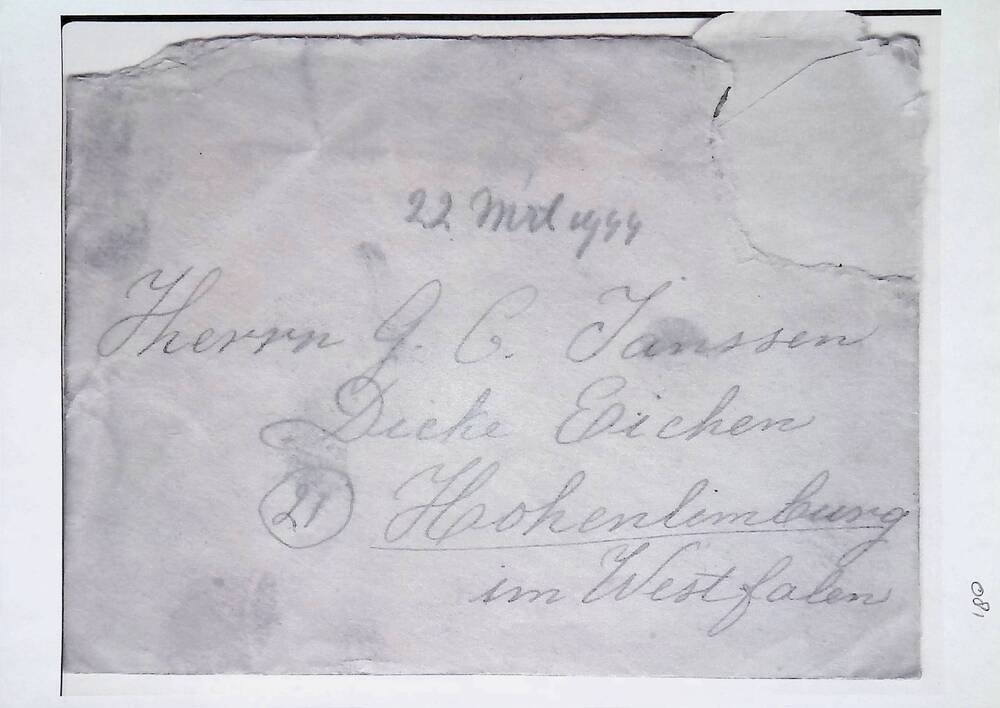 22 Mrt 1944
Herrn J. C. Janssen
Dicke Eichen
21 Hohenlimburg
im Westfalen
180